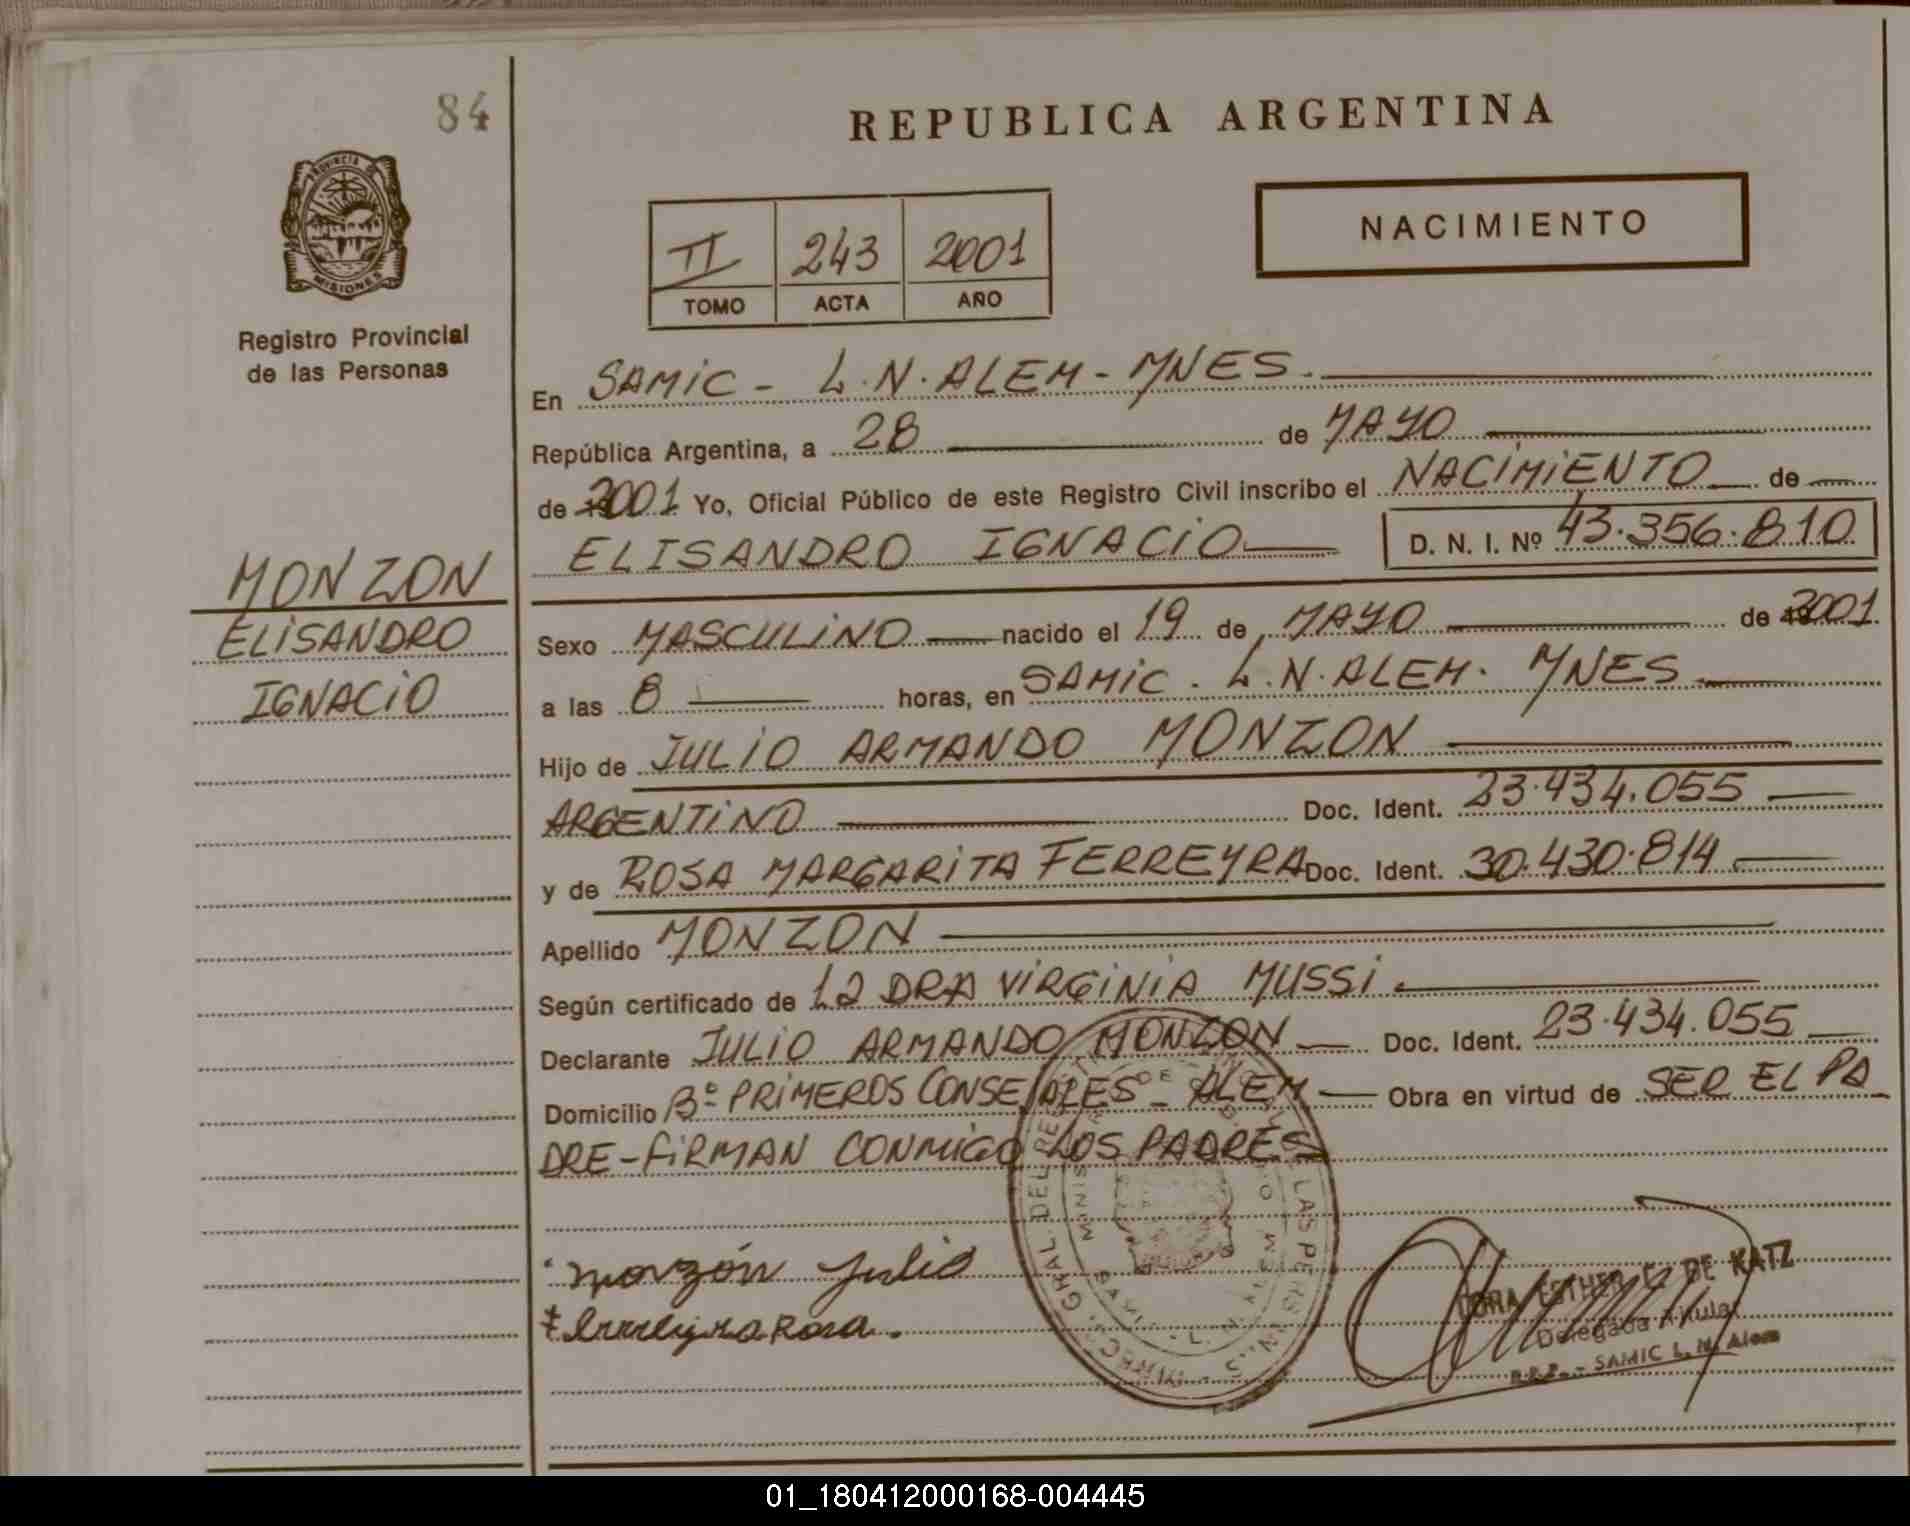 84
REPUBLICA ARGENTINA
PROVINCIA DE MISIONES
Registro Provincial
de las Personas
II 243 2001
TOMO ACTA AÑO
NACIMIENTO
En SAMIC - L.N. ALEM - MNES.
República Argentina, a 28 de MAYO
de 2001 Yo, Oficial Público de este Registro Civil inscribo el NACIMIENTO de
ELISANDRO IGNACIO D. N. I. Nº 43.356.810
MONZON
ELISANDRO
IGNACIO
Sexo MASCULINO nacido el 19 de MAYO de 2001
a las 8 horas, en SAMIC. L.N. ALEM. MNES
Hijo de JULIO ARMANDO MONZON
ARGENTINO Doc. Ident. 23.434.055
y de ROSA MARGARITA FERREYRA Doc. Ident. 30.430.814
Apellido MONZON
Según certificado de LA DRA VIRGINIA MUSSI
Declarante JULIO ARMANDO MONZON Doc. Ident. 23.434.055
Domicilio Bº PRIMEROS CONSEJALES - ALEM Obra en virtud de SER EL PA
DRE - FIRMAN CONMIGO LOS PADRES
Monzón Julio
Ferreyra Rosa.
DORA ESTHER DE KATZ
Delegada Titular
R.P.P. - SAMIC L. N. Alem
01_180412000168-004445